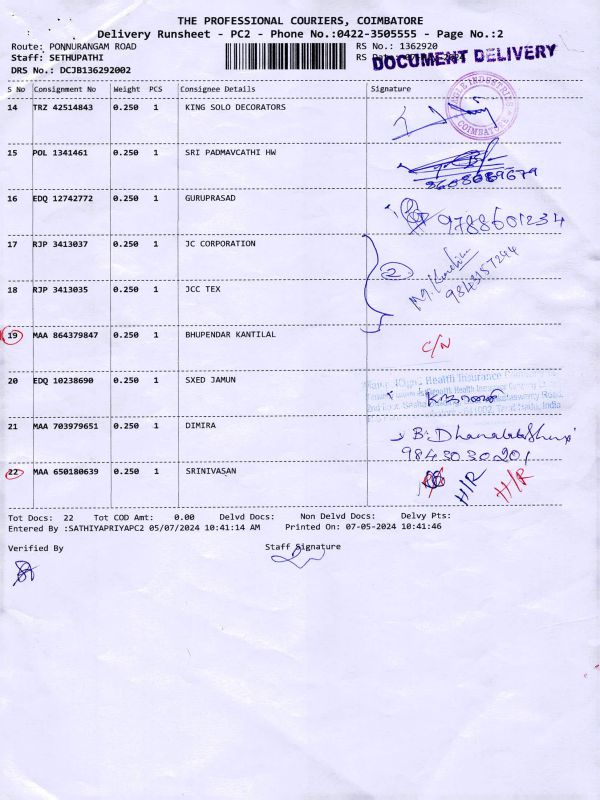 THE PROFESSIONAL COURIERS, COIMBATORE
Delivery Runsheet - PC2 - Phone No.:0422-3505555 - Page No.:2
Route: PONNURANGAM ROAD
RS No.: 1362920
Staff: SETHUPATHI
DOCUMENT DELIVERY
DRS No.: DCJB136292002
S No Consignment No Weight PCS Consignee Details Signature
14 TRZ 42514843 0.250 1 KING SOLO DECORATORS
INDUSTRIES COIMBATORE
15 POL 1341461 0.250 1 SRI PADMAVCATHI HW
16 EDQ 12742772 0.250 1 GURUPRASAD
9788601234
17 RJP 3413037 0.250 1 JC CORPORATION
2
9843157244
18 RJP 3413035 0.250 1 JCC TEX
19 MAA 864379847 0.250 1 BHUPENDAR KANTILAL
C/N
20 EDQ 10238690 0.250 1 SXED JAMUN
Health Insurance
Tamil Nadu, India
21 MAA 703979651 0.250 1 DIMIRA
9843030201
22 MAA 650180639 0.250 1 SRINIVASAN
H/R H/R
Tot Docs: 22 Tot COD Amt: 0.00 Delvd Docs: Non Delvd Docs: Delvy Pts:
Entered By :SATHIYAPRIYAPC2 05/07/2024 10:41:14 AM Printed On: 07-05-2024 10:41:46
Verified By
Staff Signature